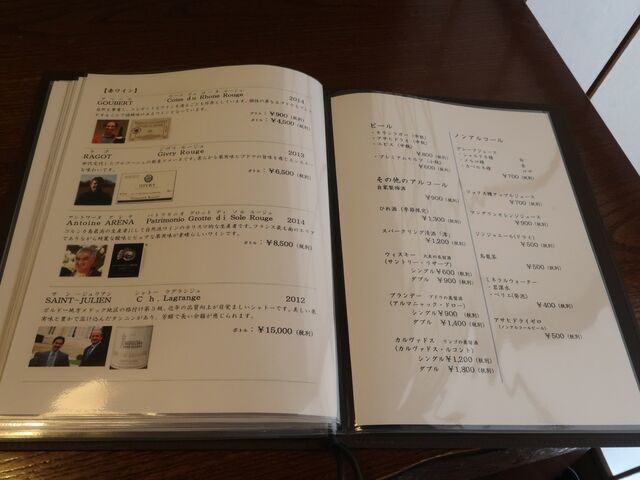 【赤ワイン】
GOUBERT
Cotes du Rhone Rouge
2014
グラス：￥900（税別）
ボトル：￥4,500（税別）
ラゴ
ジヴリ ルージュ
RAGOT
Givry Rouge
2013
ボトル：￥6,500（税別）
アントワーヌ アレナ
パトリモニオ グロット ディ ソル ルージュ
Antoine ARENA
Patrimonio Grotte di Sole Rouge
2014
コルシカ島最高の生産者にして自然派ワインのカリスマ的な生産者です。フランス最も南のエリア
でありながら綺麗な酸味とピュアな果実味が素晴らしいワインです。
ボトル：￥8,500（税別）
サン ージュリアン
シャトー ラグランジュ
SAINT-JULIEN
Ch.Lagrange
2012
ボルドー地方メドック地区の格付け第3級、近年の品質向上が目覚ましいシャトーです。美しい果
実味と豊かで溶け込んだタンニンがあり、芳醇で長い余韻が感じられます。
ボトル：￥15,000（税別）
ビール
￥800（税別）
・プレミアムモルツ（小瓶）
￥600（税別）
その他のアルコール
自家製梅酒
￥900（税別）
ひれ酒（季節限定）
￥1,300（税別）
スパークリング清酒（澪）
￥1,200（税別）
ウィスキー 大麦の蒸留酒
（サントリー・リザーブ）
シングル￥600（税別）
ダブル ￥900（税別）
ブランデー ブドウの蒸留酒
（アルマニャック・ドロー）
シングル￥900（税別）
ダブル ￥1,400（税別）
カルヴァドス リンゴの蒸留酒
（カルヴァドス・ルコント）
シングル￥1,200（税別）
ダブル ￥1,800（税別）
ノンアルコール
グレープジュース
￥700（税別）
￥700（税別）
マンダリンオレンジジュース
￥900（税別）
ジンジャエール（ドライ）
￥500（税別）
烏龍茶
￥500（税別）
ミネラルウォーター
￥400（税別）
アサヒドライゼロ
（ノンアルコールビール）
￥500（税別）